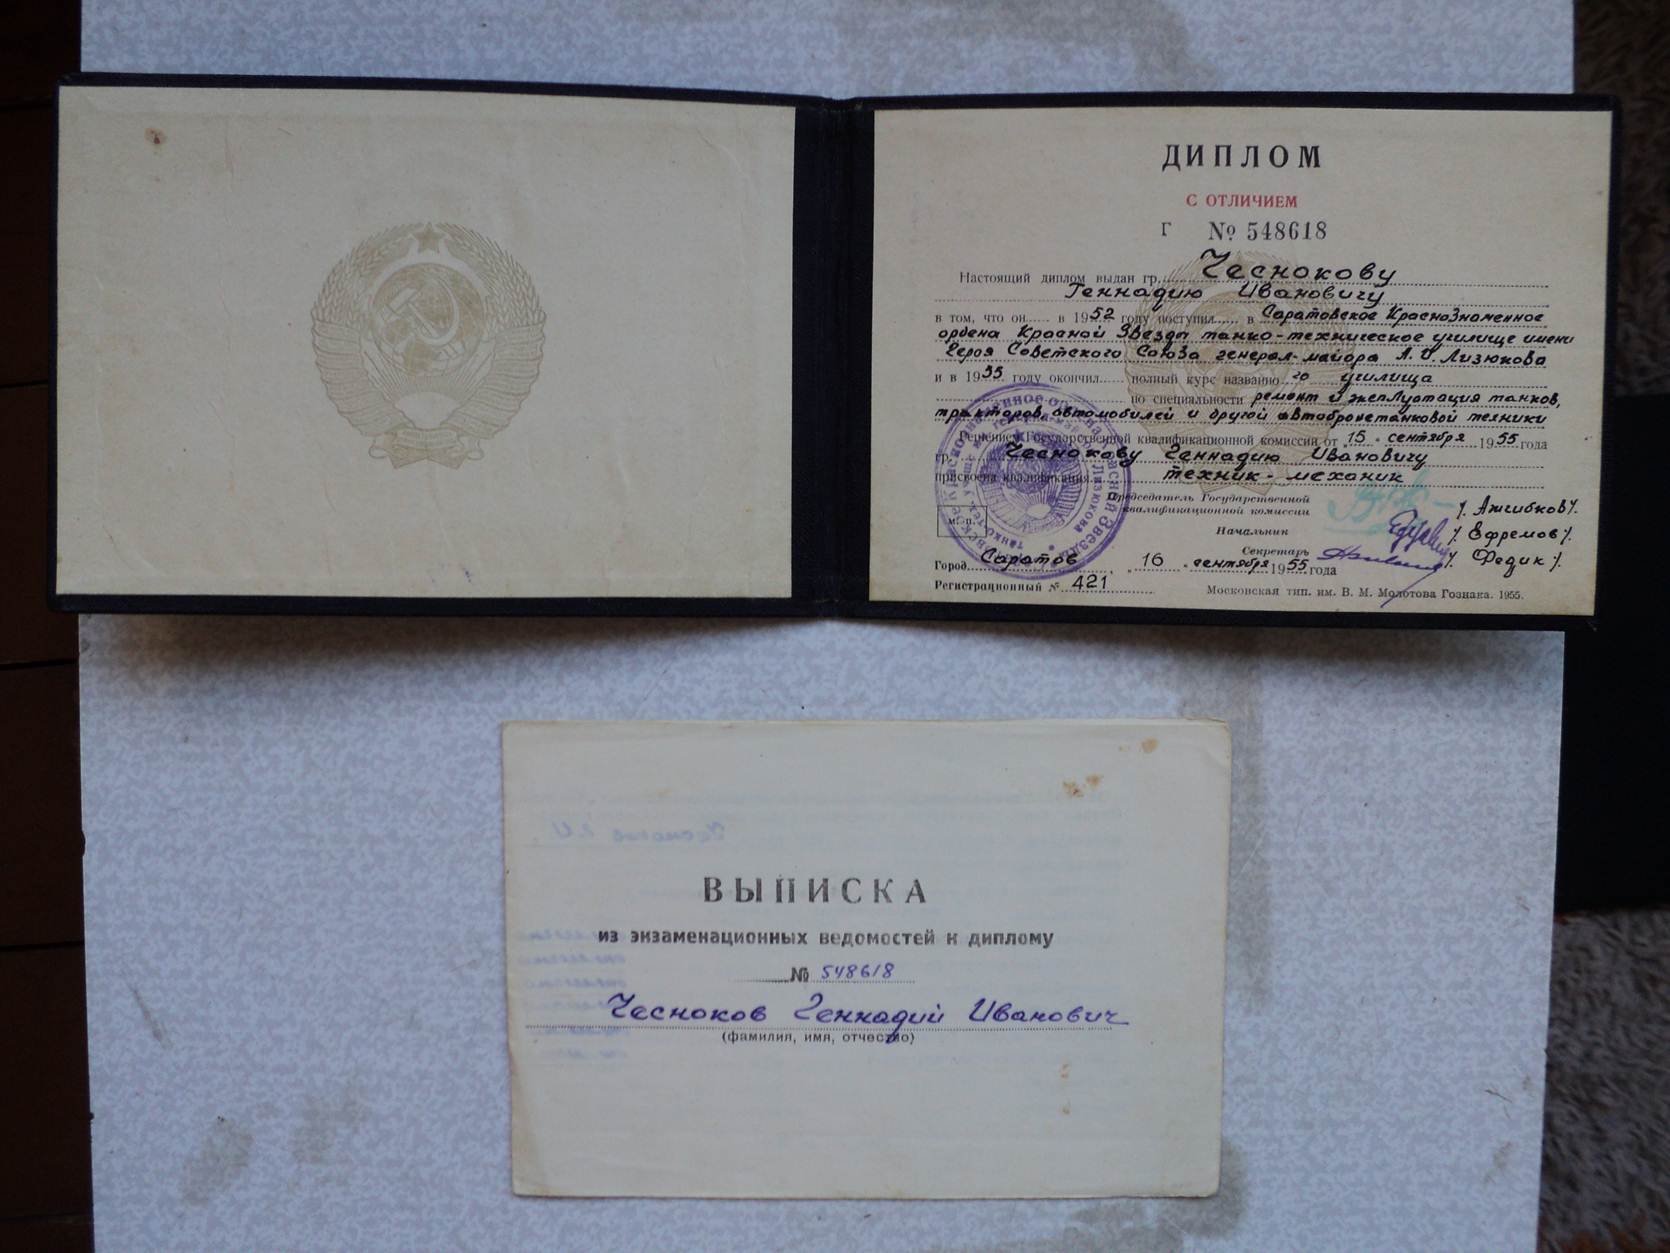 ДИПЛОМ
С ОТЛИЧИЕМ
Г № 548618
Настоящий диплом выдан гр. Чеснокову
Геннадию Ивановичу
в том, что он в 1952 году поступил в Саратовское Краснознаменное
ордена Красной Звезды танко-техническое училище имени
Героя Советского Союза генерал-майора А.И. Лизюкова
и в 1955 году окончил полный курс названного училища
по специальности ремонт и эксплуатация танков,
тракторов, автомобилей и другой автобронетанковой техники
Решением Государственной квалификационной комиссии от 15 сентября 1955 года
гр. Чеснокову Геннадию Ивановичу
присвоена квалификация техник-механик
Председатель Государственной
квалификационной комиссии
/. Ажгибков /.
м. п.
Начальник /. Ефремов /.
Секретарь /. Федик /.
Город Саратов, „16“ сентября 1955 года
Регистрационный № 421
Московская тип. им. В. М. Молотова Гознака. 1955.
ВЫПИСКА
из экзаменационных ведомостей к диплому
№ 548618
Чесноков Геннадий Иванович
(фамилия, имя, отчество)